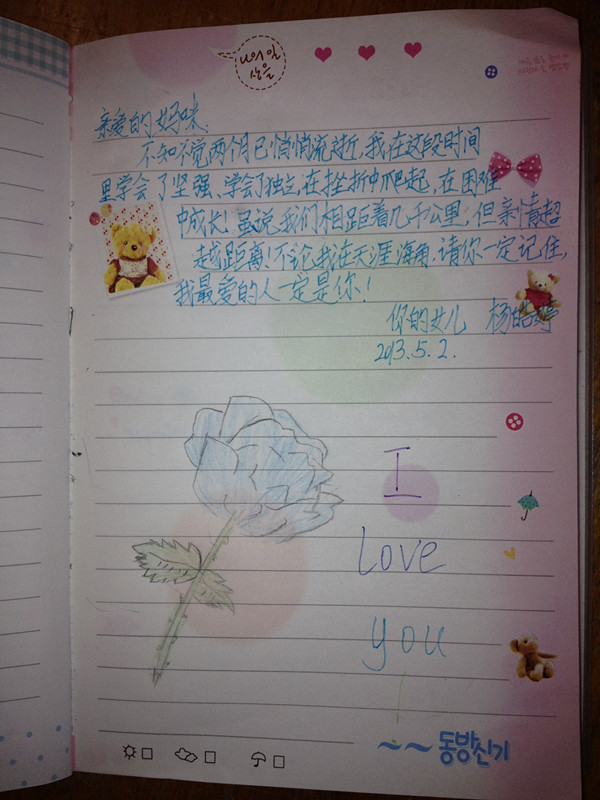 나의 일
상을
亲爱的妈咪：
不知不觉两个月已悄悄流逝，我在这段时间
里学会了坚强、学会了独立，在挫折中爬起，在困难
中成长！虽说我们相距着几千公里，但亲情超
越距离！不论我在天涯海角，请你一定记住，
我最爱的人一定是你！
你的女儿 杨皓婷
2013.5.2.
I
Love
you
동방신기